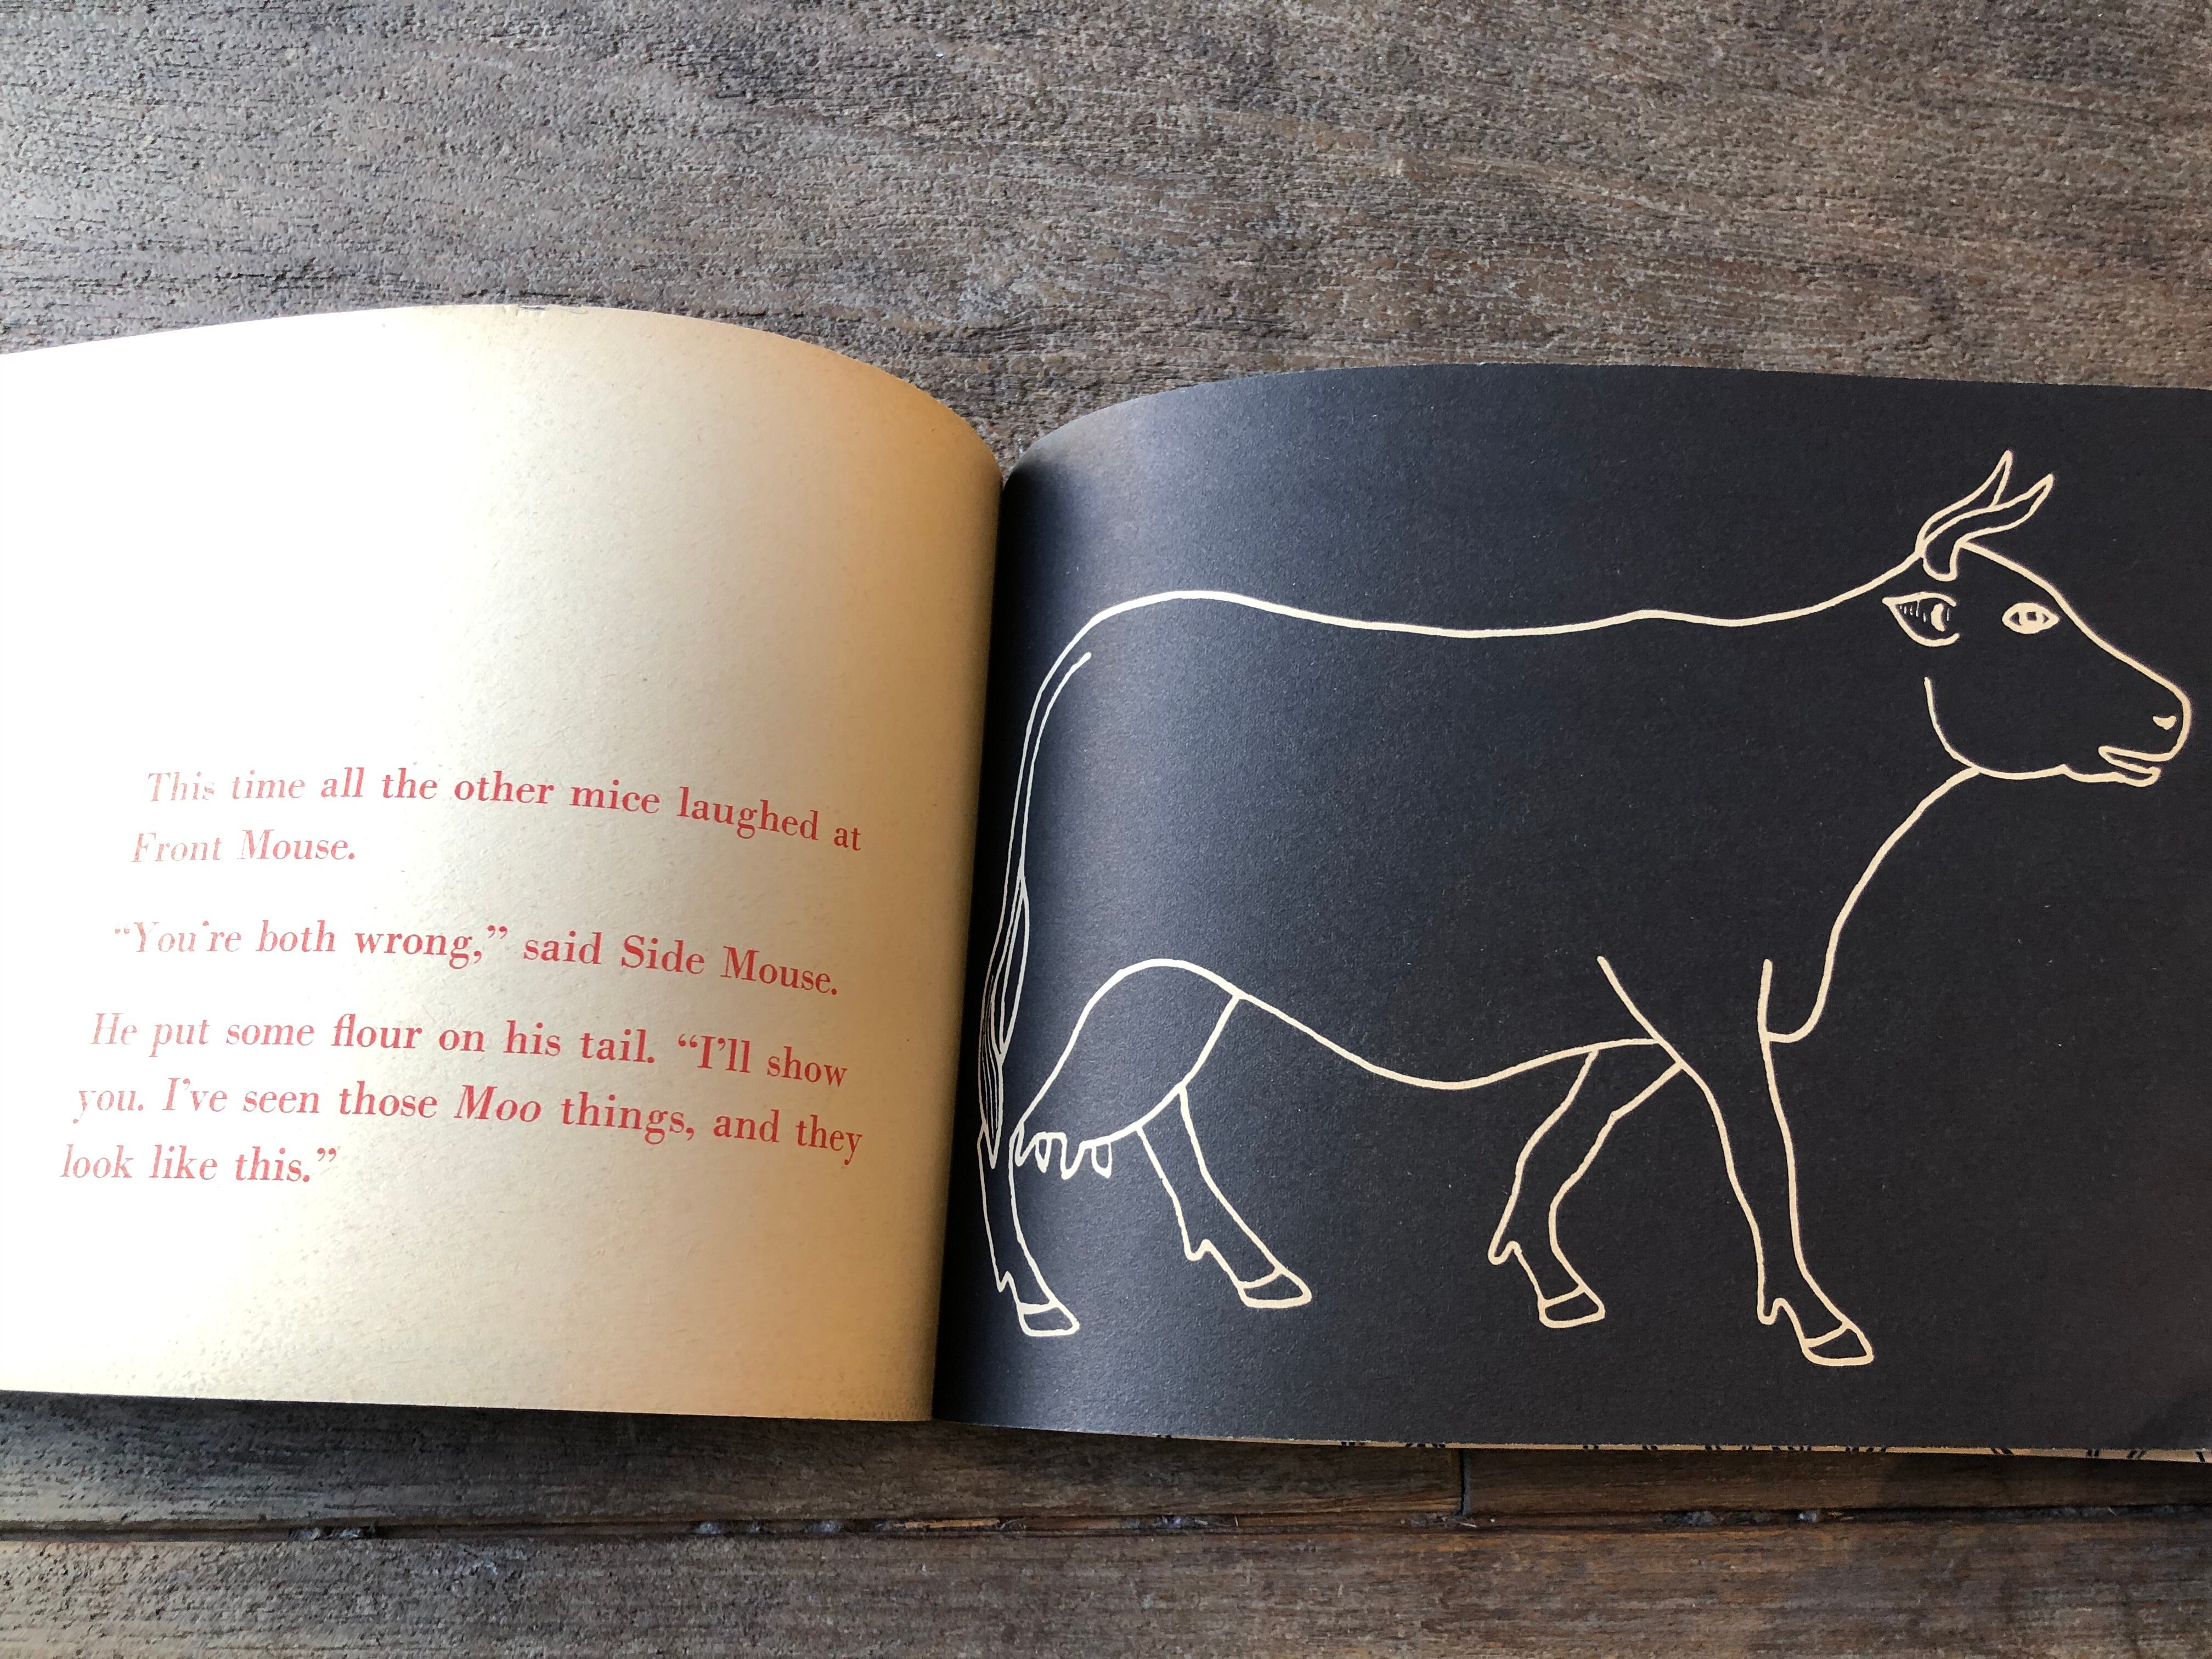 This time all the other mice laughed at
Front Mouse.
“You’re both wrong,” said Side Mouse.
He put some flour on his tail. “I’ll show
you. I’ve seen those Moo things, and they
look like this.”